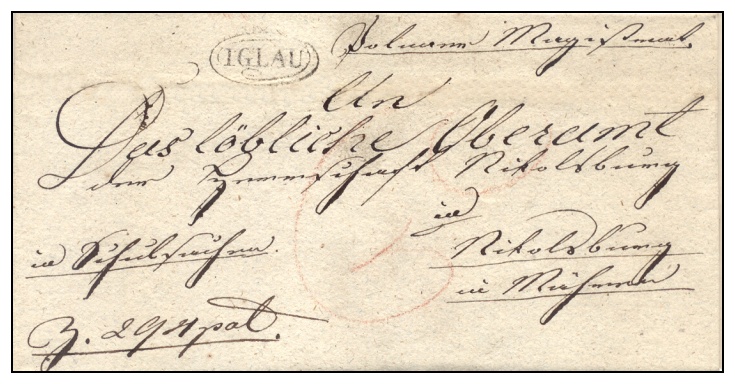 IGLAU
Polnaer Magistrat.
An
Das löbliche Oberamt
der Herrschaft Nikolsburg
in
Nikolsburg
in Mähren
in Schulsachen.